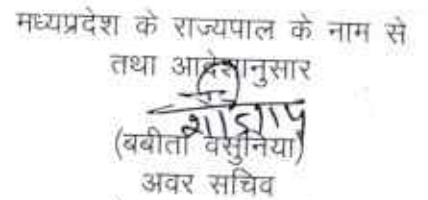 मध्यप्रदेश के राज्यपाल के नाम से
तथा आदेशानुसार
(बबीता वसुनिया)
अवर सचिव